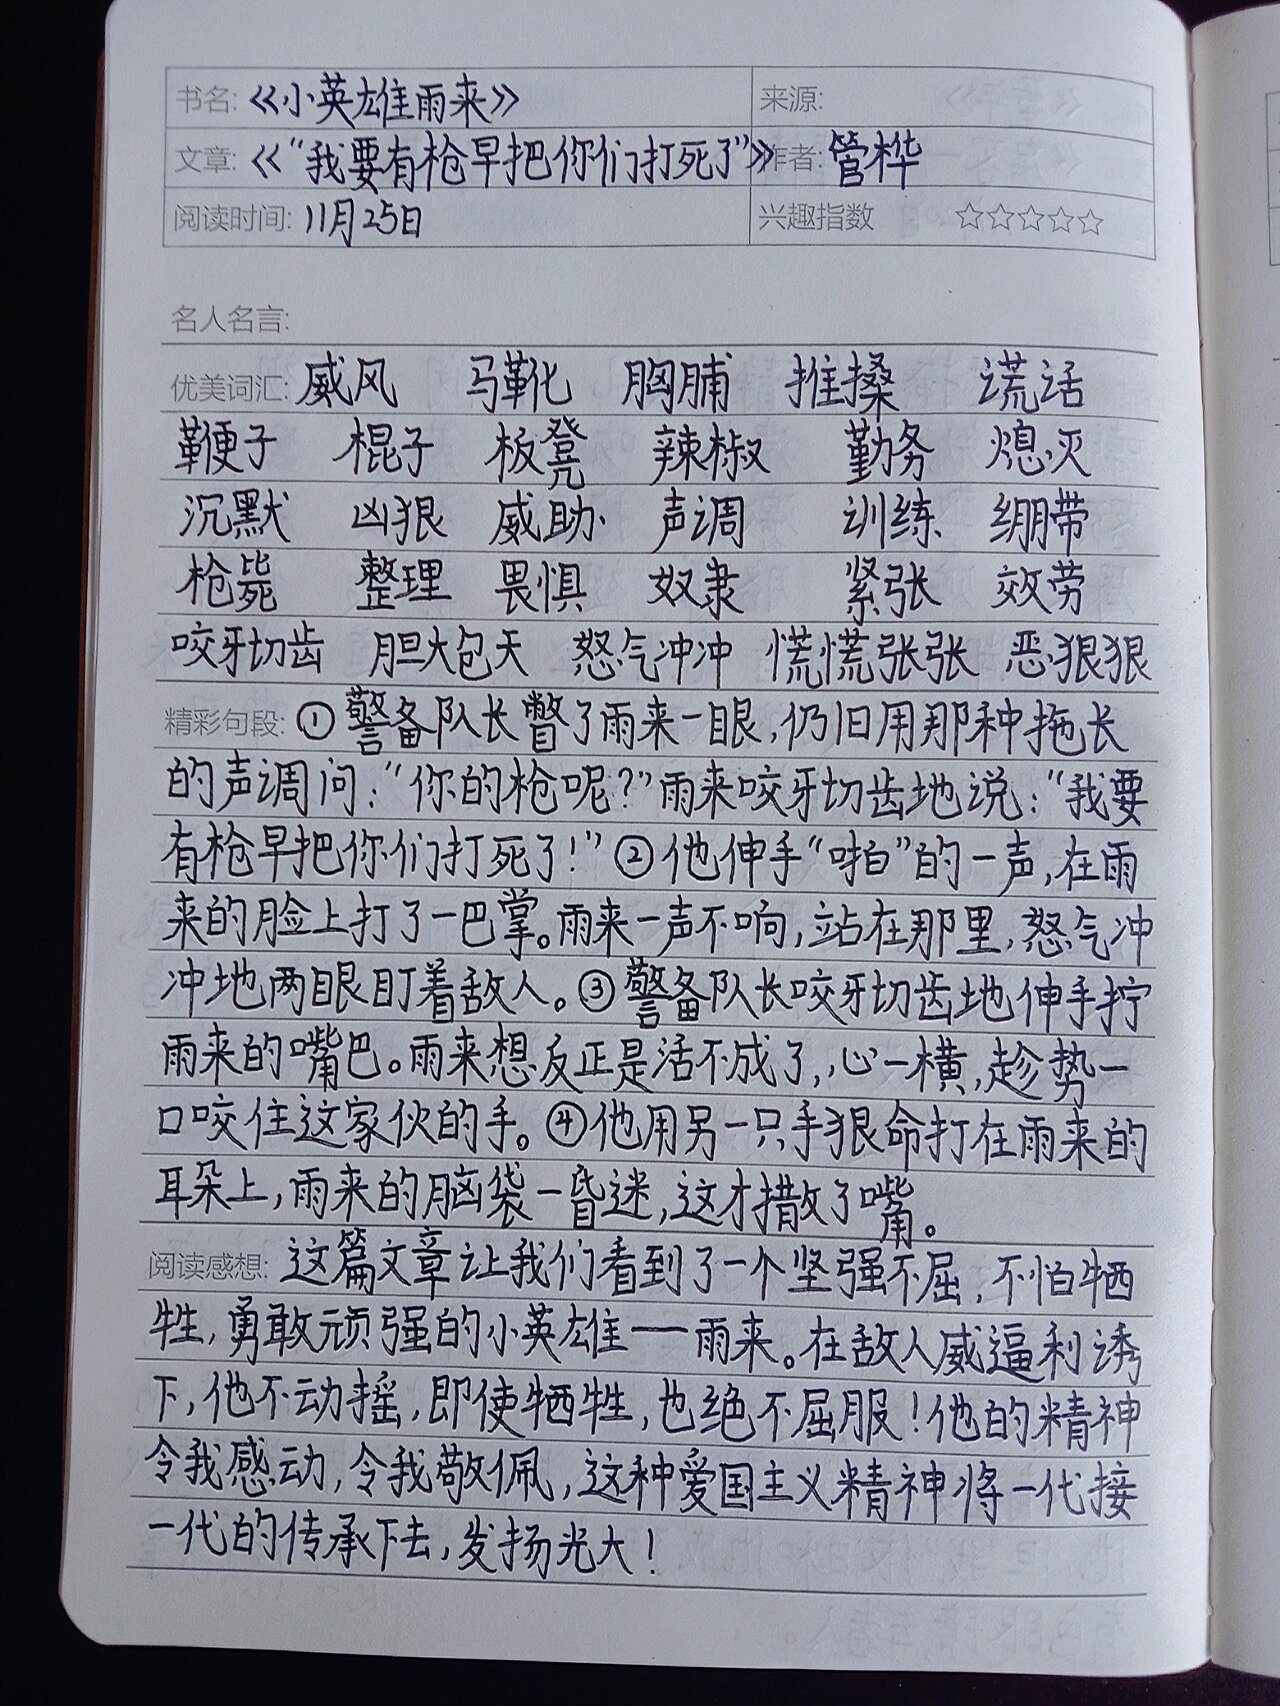 书名: 《小英雄雨来》 来源:
文章: 《“我要有枪早把你们打死了”》 作者: 管桦
阅读时间: 11月25日 兴趣指数 ☆☆☆☆☆
名人名言:
优美词汇: 威风 马靴 胸脯 推搡 谎话
鞭子 棍子 板凳 辣椒 勤务 熄灭
沉默 凶狠 威助 声调 训练 绷带
枪毙 整理 畏惧 奴隶 紧张 效劳
咬牙切齿 胆大包天 怒气冲冲 慌慌张张 恶狠狠
精彩句段: ①警备队长瞥了雨来一眼,仍旧用那种拖长
的声调问:“你的枪呢?”雨来咬牙切齿地说:“我要
有枪早把你们打死了!”②他伸手“啪”的一声,在雨
来的脸上打了一巴掌。雨来一声不响,站在那里,怒气冲
冲地两眼盯着敌人。③警备队长咬牙切齿地伸手拧
雨来的嘴巴。雨来想反正是活不成了,心一横,趁势一
口咬住这家伙的手。④他用另一只手狠命打在雨来的
耳朵上,雨来的脑袋一昏迷,这才撒了嘴。
阅读感想: 这篇文章让我们看到了一个坚强不屈,不怕牺
牲,勇敢顽强的小英雄——雨来。在敌人威逼利诱
下,他不动摇,即使牺牲,也绝不屈服!他的精神
令我感动,令我敬佩,这种爱国主义精神将一代接
一代的传承下去,发扬光大!